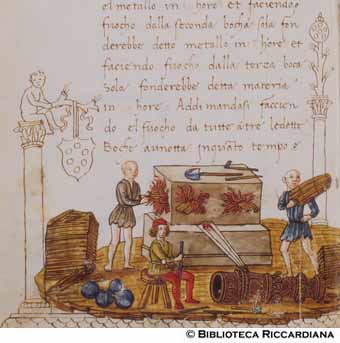 el metallo in hore et faciendo
fuocho dalla seconda bocha sola fon
derebbe detto metallo in hore et
faciendo fuocho dalla terza boca
sola fonderebbe detta materia
in hore. Addimandasi faccien
do el fuocho da tutte a tre le dette
Boche a un otta in quãto tempo s
© BIBLIOTECA RICCARDIANA